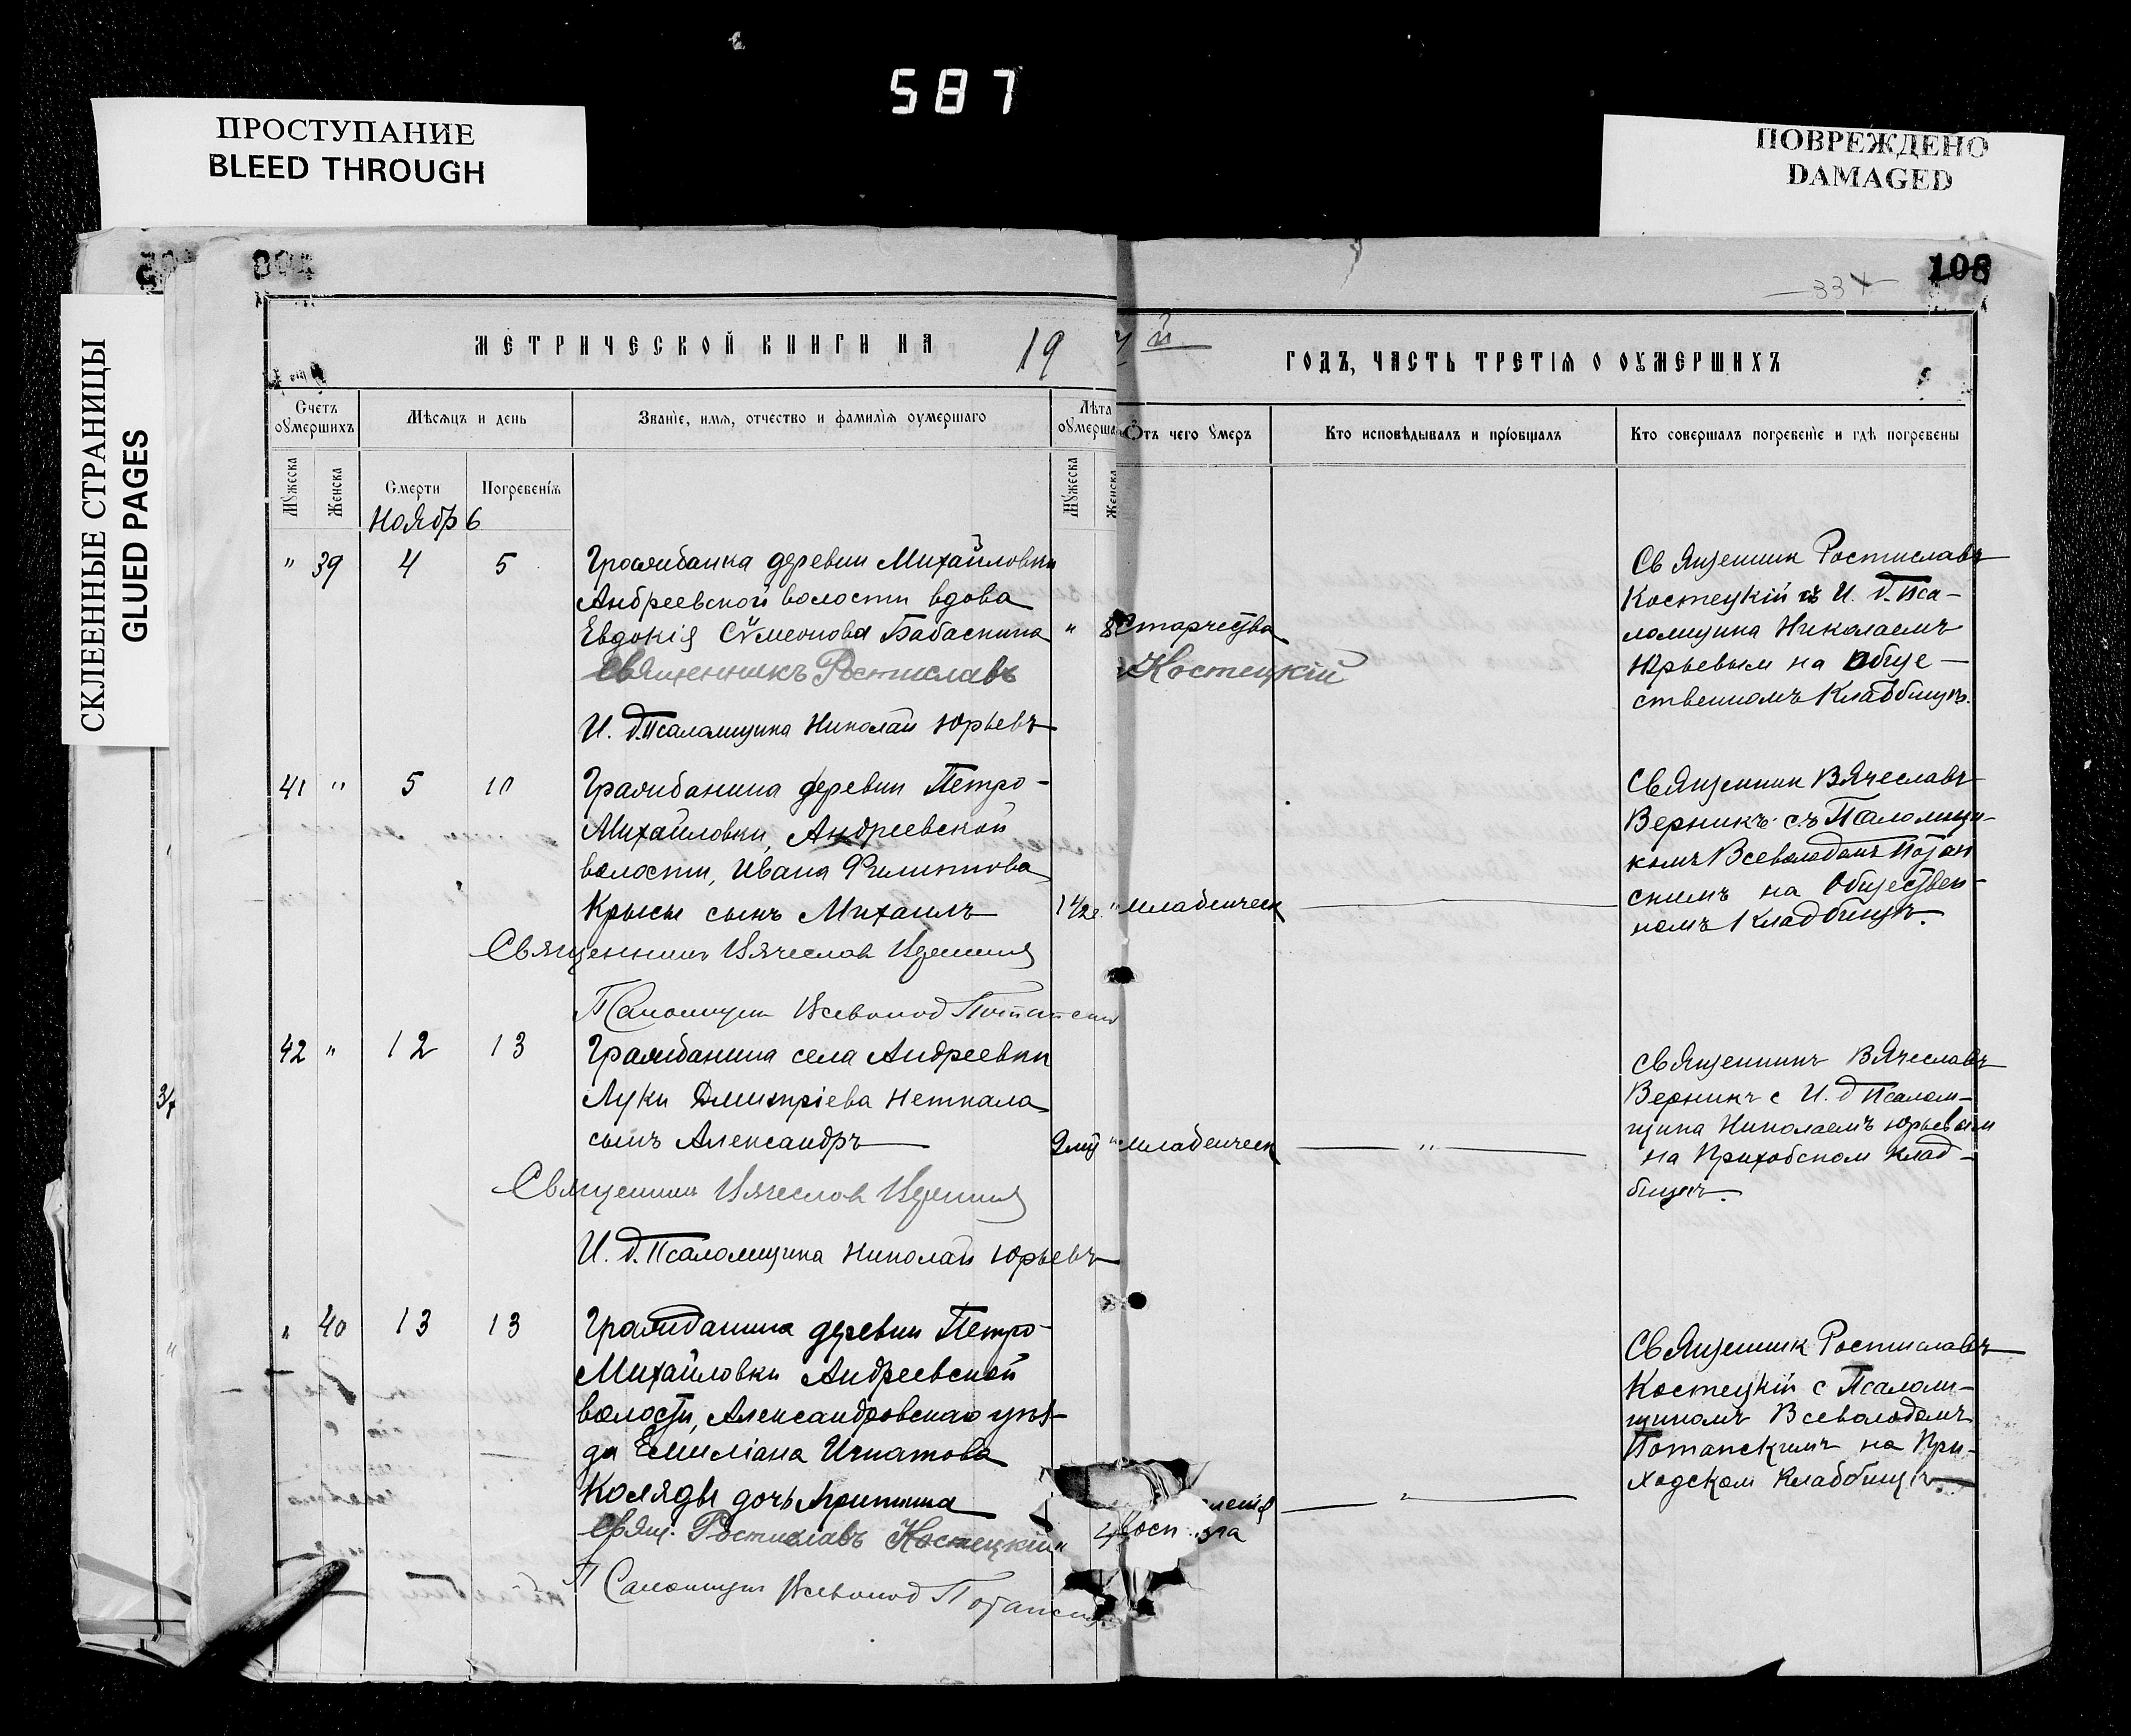 587
ПРОСТУПАНИЕ
BLEED THROUGH
ПОВРЕЖДЕНО
DAMAGED
СКЛЕЕННЫЕ СТРАНИЦЫ
GLUED PAGES
108
334
МЕТРИЧЕСКОЙ КНИГИ НА 19
й ГОДЪ, ЧАСТЬ ТРЕТІѦ О ОУМЕРШИХЪ
Счетъ оумершихъ
Мѣсѧцъ и день
Званіе, имѧ, отчество и фамиліѧ оумершаго
Лѣта
Ѿтъ чего умеръ
Кто исповѣдывалъ и пріобщалъ
Кто совершалъ погребеніе и гдѣ погребены
Мужеска
Женска
Смерти
Погребеніѧ
Мужеска
Женска
Ноябрь
" 39 4 5
Гражданка деревни Михайловки
Андреевской волости вдова
Евдокія Сѵмеонова Бабаскина " Старчества
Священникъ Ростиславъ Костецкій
И. д. Псаломщика Николай Юрьевъ
Священник Ростиславъ
Костецкій съ И. д. Пса-
ломщика Николаемъ
Юрьевым на Обще-
ственномъ Кладбищѣ.
41 " 5 10
Гражданина деревни Петро-
Михайловки, Андреевской
волости, Ивана Филиппова
Крысы сынъ Михаилъ " младенческ
Священник Вячеслав Верник
Псаломщик Всеволод Потапский
Священник Вячеславъ
Верникъ съ Псаломщи-
комъ Всеволодомъ Потап
скимъ на Обществен-
номъ Кладбищѣ.
42 " 12 13
Гражданина села Андреевки
Луки Дмитріева
сынъ Александръ " младенческ "
Священник Вячеслав Верник
И. д. Псаломщика Николай Юрьевъ
Священникъ Вячеславъ
Верникъ с И. д Псалом-
щика Николаемъ Юрьевым
на Приходском клад-
бищѣ.
" 40 13 13
Гражданина деревни Петро-
Михайловки Андреевской
волости, Александровскаго уѣз-
да Емиліана Игнатова
Коляды дочь "
Свящ. Ростиславъ Костецкій
Псаломщик Всеволод Потапский
Священник Ростиславъ
Костецкій с Псалом-
щикомъ Всеволодомъ
Потапскимъ на При-
ходском кладбищѣ